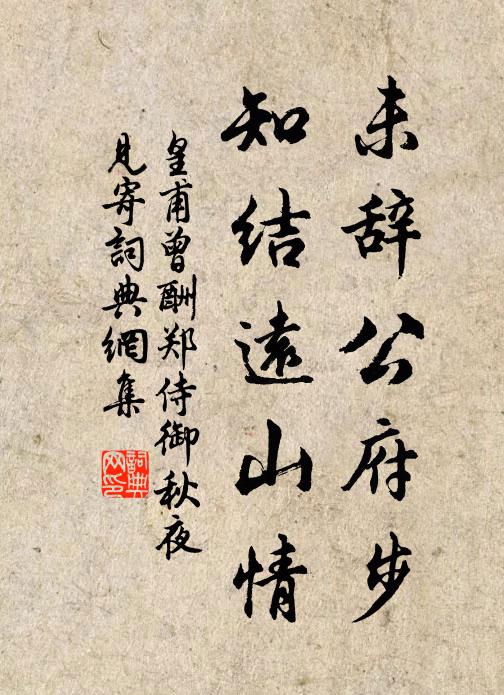 未辞公府步
知结遠山情
皇甫曾酬郑侍御秋夜
見寄詞典網集
詞典
网印